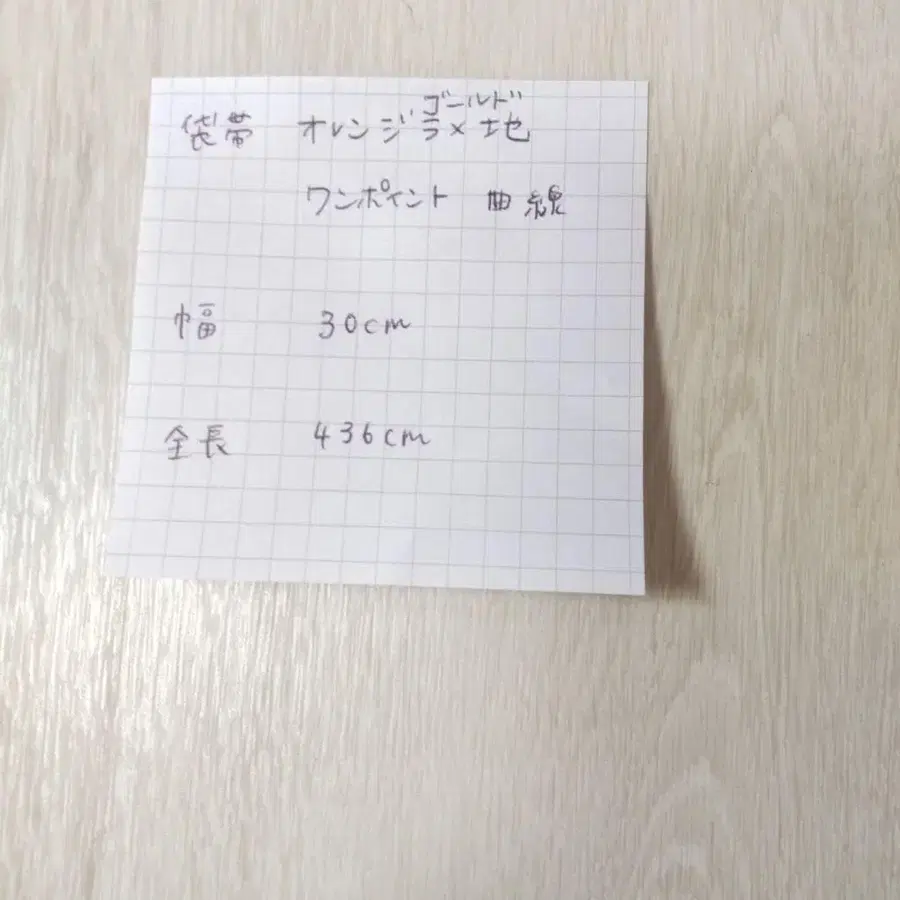 ゴールド
袋帯 オレンジラメ地
ワンポイント 曲線
幅 30cm
全長 436cm